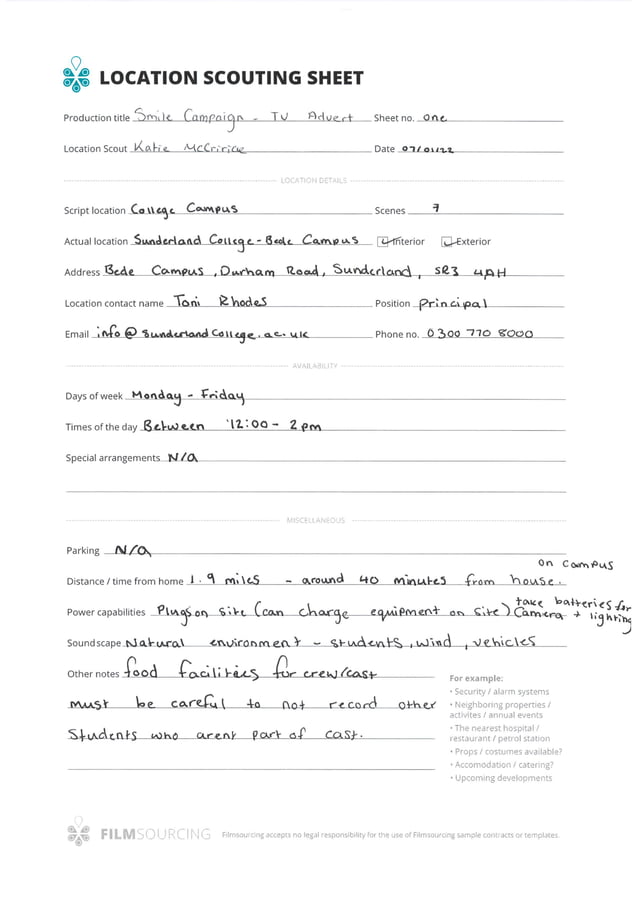 LOCATION SCOUTING SHEET
Production title Smile Campaign - TV Advert Sheet no. one
Location Scout Katie McCririck Date 07/01/22
LOCATION DETAILS
Script location College Campus Scenes 7
Actual location Sunderland College - Bede Campus Interior Exterior
Address Bede Campus, Durham Road, Sunderland, SR3 4AH
Location contact name Toni Rhodes Position Principal
Email info@sunderlandcollege.ac.uk Phone no. 0300 770 8000
AVAILABILITY
Days of week Monday - Friday
Times of the day Between 12:00 - 2pm
Special arrangements N/A
MISCELLANEOUS
Parking N/A
on campus
Distance / time from home 1.9 miles - around 40 minutes from house.
take batteries for
Power capabilities Plugs on site (can charge equipment on site) Camera + lighting
Soundscape Natural environment - students, wind, vehicles
Other notes food facilities for crew/cast
must be careful to not record other
Students who arent part of cast.
For example:
• Security / alarm systems
• Neighboring properties /
activites / annual events
• The nearest hospital /
restaurant / petrol station
• Props / costumes available?
• Accomodation / catering?
• Upcoming developments
FILMSOURCING Filmsourcing accepts no legal responsibility for the use of Filmsourcing sample contracts or templates.